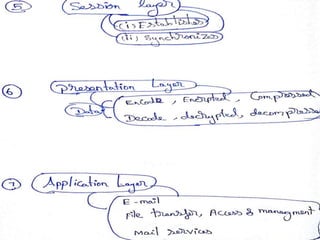 ⑤ Session layer
(i) Establishes
(ii) Synchronizes
⑥ presentation Layer
Data Encode, Encrpted, Compressed
Decode, decrypted, decompresse
⑦ Application Layer
E-mail
File transfer, Access & managment
Mail services